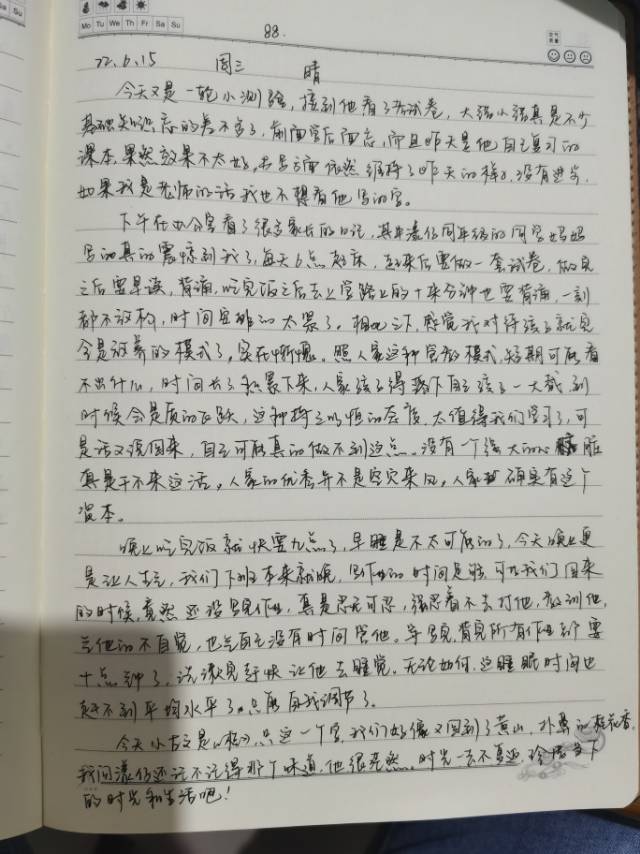 Su
Mo Tu We Th Fr Sa Su
88.
天气
心情
22.6.15 周三 晴
今天又是一轮小测验，接到他看了看试卷，大强小强真是不少
基础知识忘的差不多了，前面学后面忘，而且昨天是他自己复习的
课本，果然效果不太好，书写方面依然保持了昨天的样子，没有进步，
如果我是老师的话我也不想看他写的字。
下午在办公室看了很多家长的日记，其中漾仔同年级的同学妈妈
写的真的震惊到我了，每天6点起床，起来后要做一套试卷，做完
之后要早读，背诵，吃完饭之后去上学路上的十来分钟也要背诵，一刻
都不放松，时间安排的太紧了。相比之下，感觉我对待孩子就完
全是放养的模式了，实在惭愧。照人家这种学教模式，短期可能看
不出什么，时间长了积累下来，人家孩子得落下自己孩子一大截，到
时候会是质的飞跃，这种持之以恒的态度，太值得我们学习了，可
是话又说回来，自己可能真的做不到这点。没有一个强大的心脏
真是干不来这活，人家的优秀并不是空穴来风，人家确实有这个
资本。
晚上吃完饭就快要九点了，早睡是不太可能的了，今天晚上更
是让人生气，我们下班本来就晚，写作业的时间足够，可在我们回来
的时候，竟然还没写完作业，真是忍无可忍，强忍着不去打他，教训他，
气他的不自觉，也气自己没有时间管他。等写完，背完所有作业都要
十点钟了，洗漱完赶快让他去睡觉。无论如何，这睡眠时间也
赶不到平均水平了。只能自我调节了。
今天小古文是《桂》，只这一个字，我们好像又回到了黄山，扑鼻的桂花香，
我问漾仔还记不记得那个味道，他很茫然。时光一去不复返，珍惜当下
的时光和生活吧！